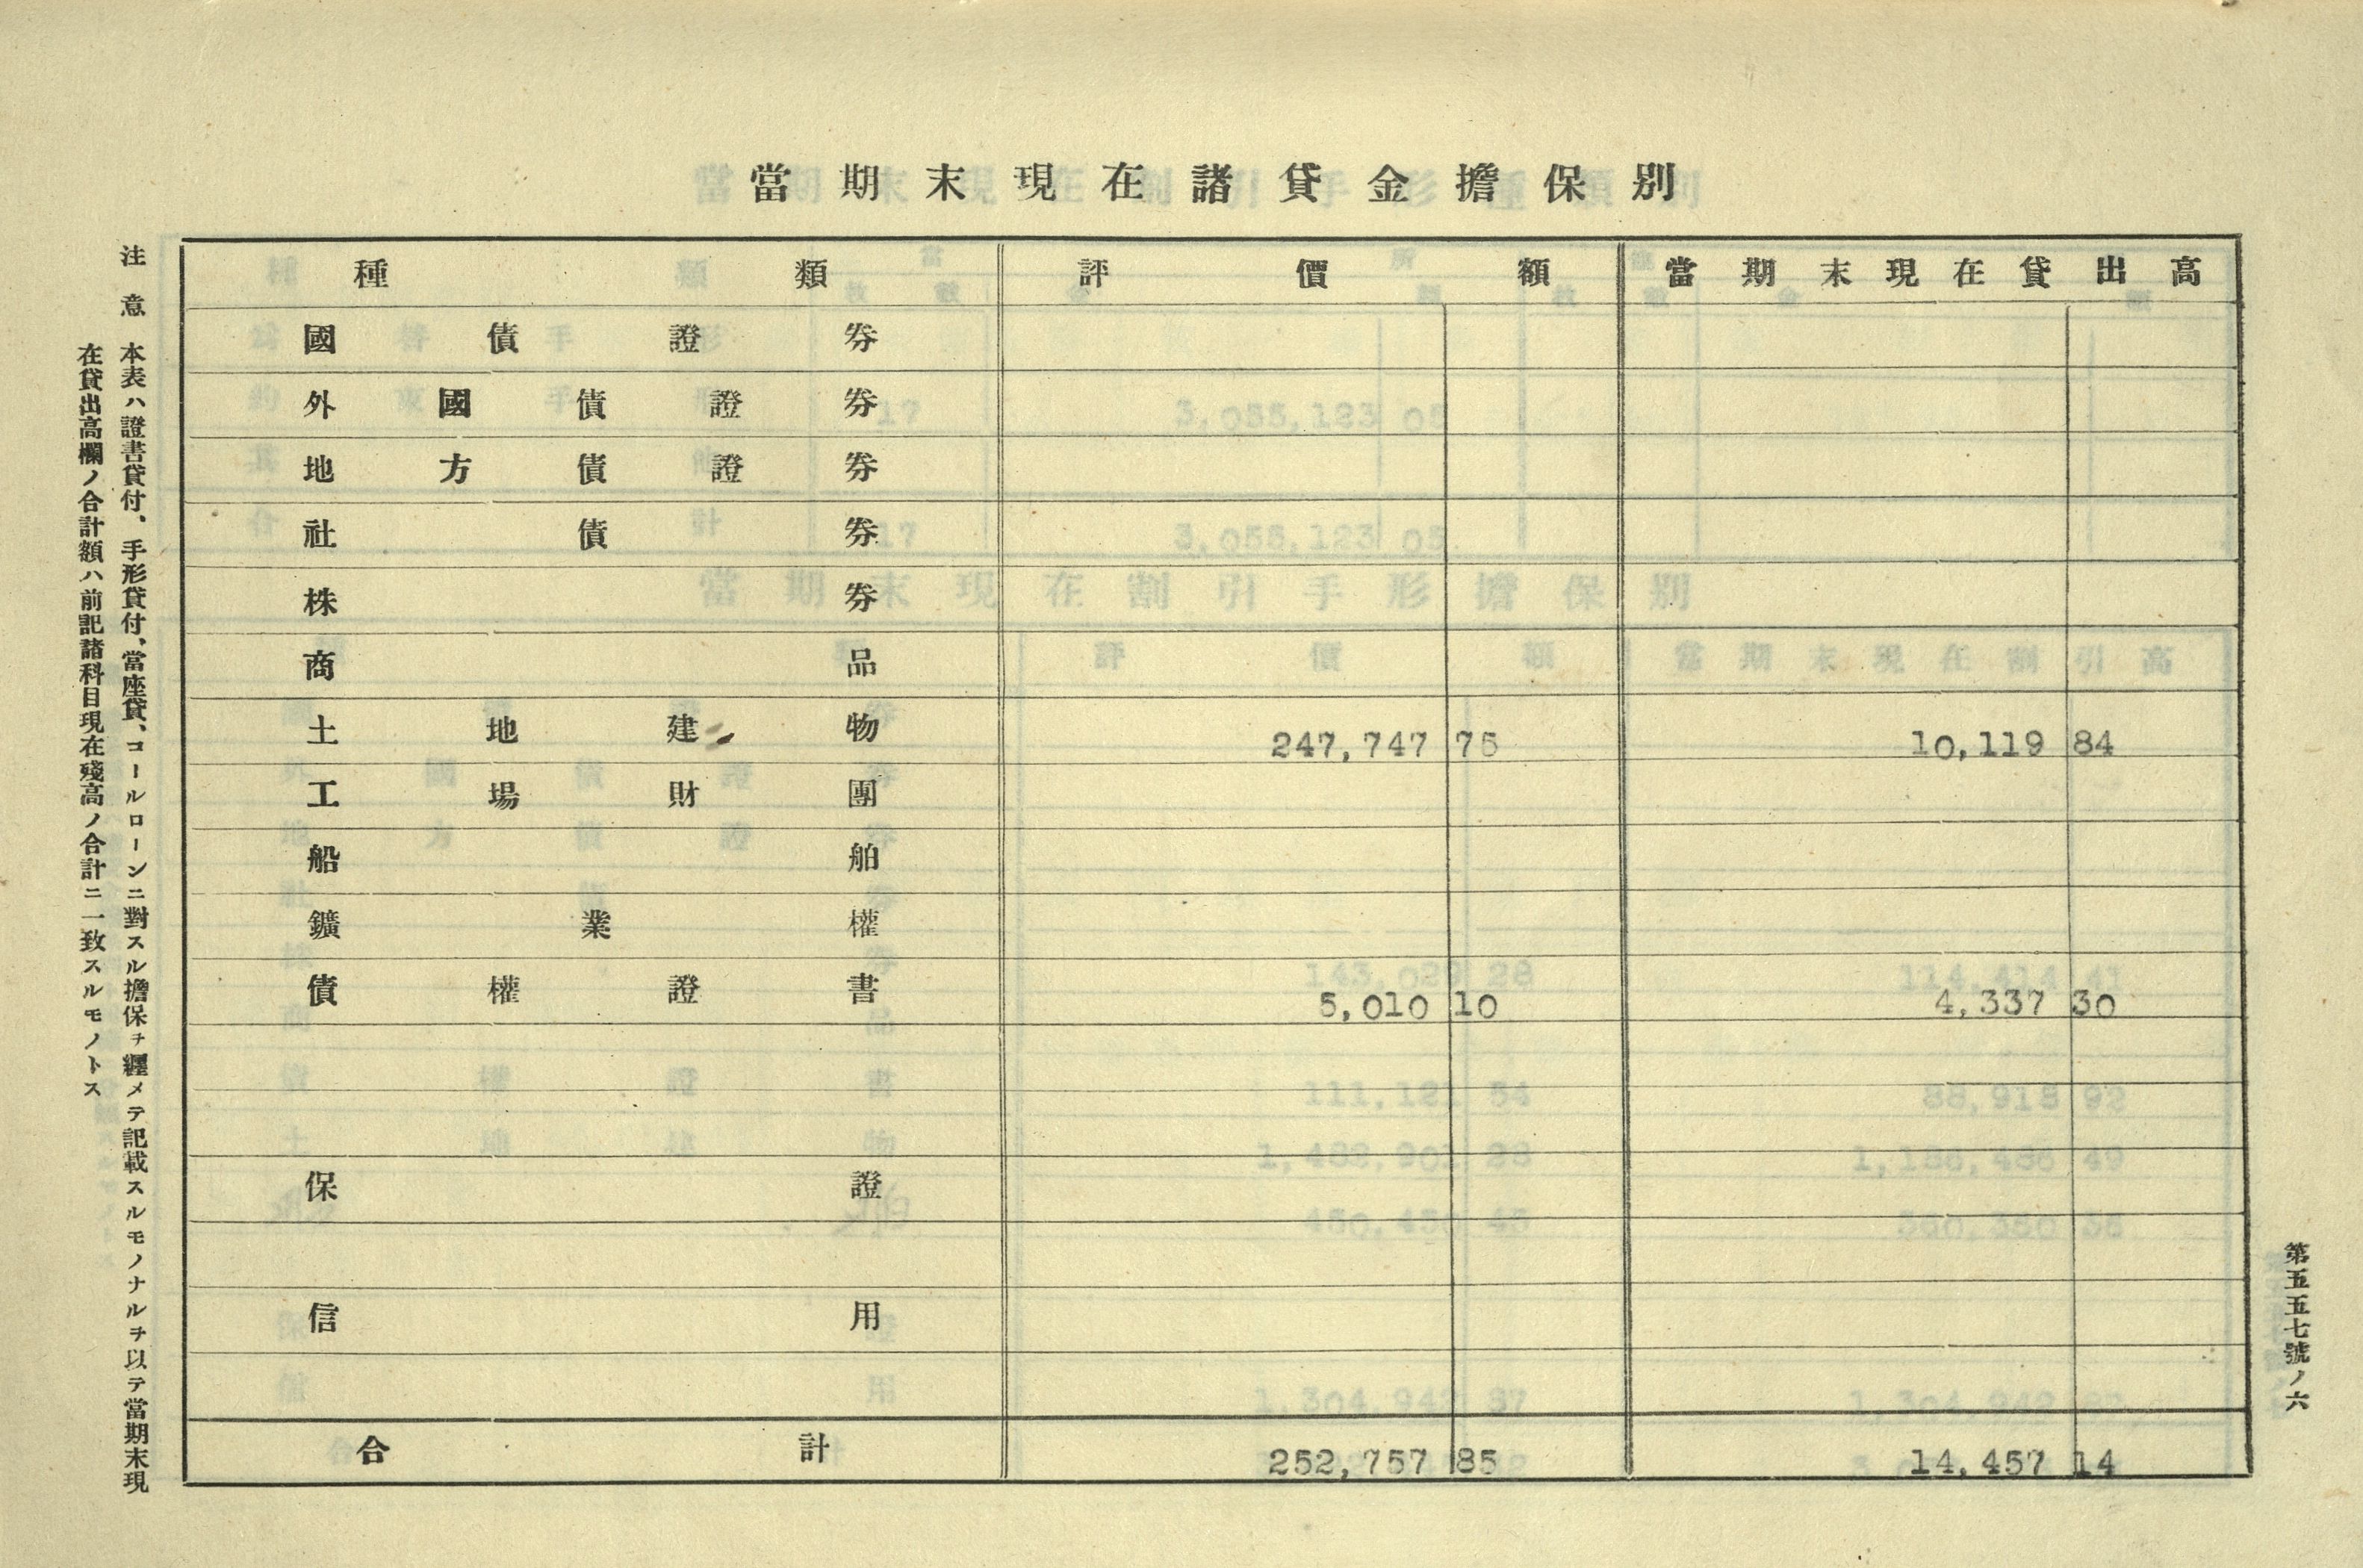 當期末現在諸貸金擔保別
種類 評價額 當期末現在貸出高
國債證券
外國債證券
地方債證券
社債券
株券
商品
土地建物 247,747 75 10,119 84
工場財團
船舶
鑛業權
債權證書 5,010 10 4,337 30
保證
信用
合計 252,757 85 14,457 14
第五五七號ノ六
注意 本表ハ證書貸付、手形貸付、當座貸、コールローンニ對スル擔保ヲ纒メテ記載スルモノナルヲ以テ當期末現
在貸出高欄ノ合計額ハ前記諸科目現在殘高ノ合計ニ一致スルモノトス